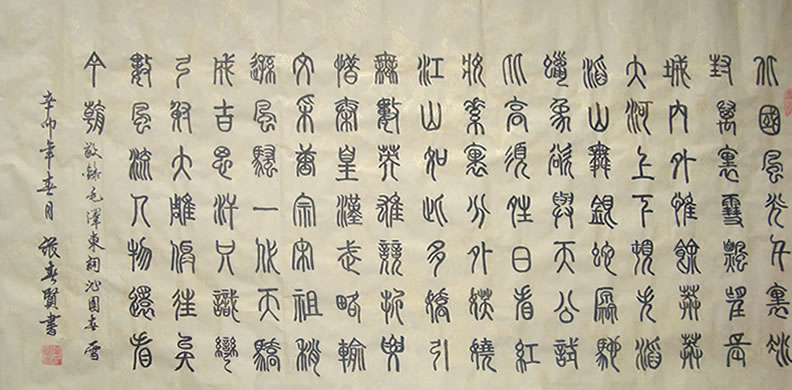 北國風光千裏冰
封萬裏雪飄望長
城内外惟餘莽莽
大河上下頓失滔
滔山舞銀蛇原馳
蠟象欲與天公試
比高須晴日看紅
妝素裹分外妖嬈
江山如此多嬌引
無數英雄競折腰
惜秦皇漢武略輸
文采唐宗宋祖稍
遜風騷一代天驕
成吉思汗只識彎
弓射大雕俱往矣
數風流人物還看
今朝 敬録毛澤東詞沁園春雪
辛卯年春月 張春賢書